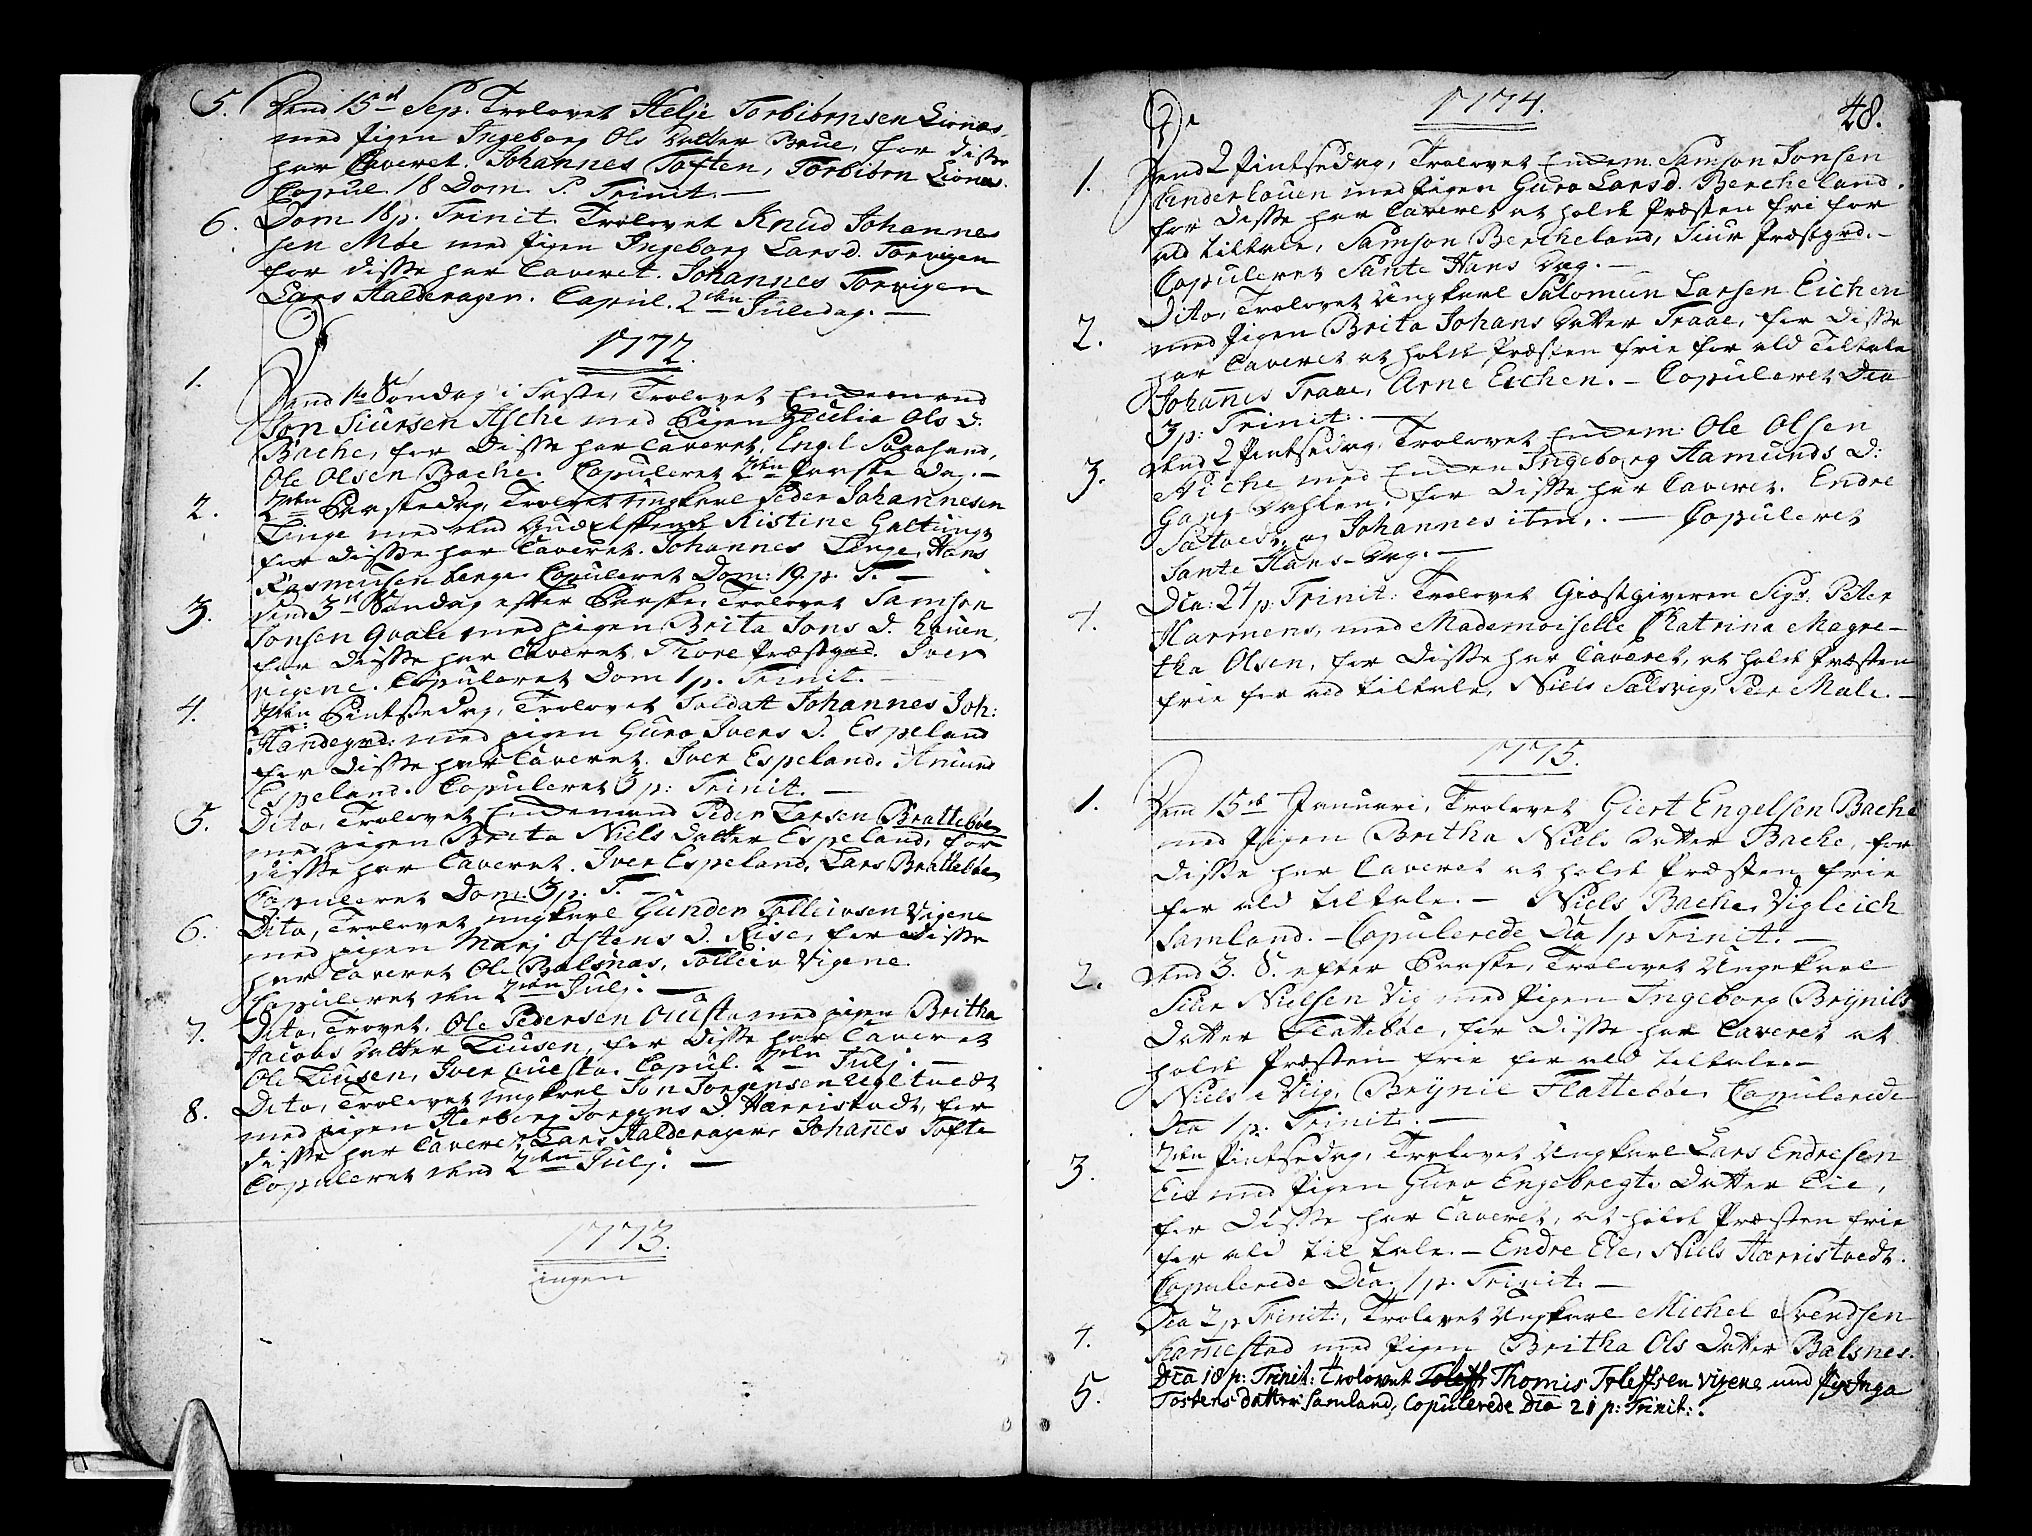 5. Dend 15de Sep. Trolovet Helje Torbiörnsen Lionæs,
med Pigen Ingeborg Ols Datter Baue, for disse
har Caveret. Johannes Toften, Torbiörn Lionæs.
Copul. 18 Dom. P. Trinit. —
6. Dom. 18 p. Trinit. Trolovet Knud Johanne
sen Moe med Pigen Ingeborg Larsd. Torvigen
for disse har Caveret. Johannes Torvigen
Lars Halderager. Copul. 2den Juledag. —
1772.
1. Dend 1te Söndag i Faste, Trolovet Enckemand
Jon Siursen Asche med Pigen Cecilie Ols D.
Bache, for Disse har Caveret, Engel
Ole Olsen Bache. Copuleret 2den Paaske Dag. —
2. 2den Paaskedag, Trolovet Ungkarl Peder Johannesen
Linge med Kistine Galtung,
for disse har Caveret. Johannes Linge, Hans
Rasmusen berge. Copuleret Dom: 19. p. T. —
3. Dend 3de Söndag efter Paaske, Trolovet Samson
Jonsen Qvale med pigen Brita Jons D. Lauen,
for Disse har Caveret, Thore Præstgrd. Iver
vigene. Copuleret Dom 1 p. Trinit. —
4. 2den Pintsedag, Trolovet Soldatt Johannes Joh:
Handegrd. med pigen Guro Ivers D. Espeland
for Disse har Caveret. Iver Espeland. Amund
Espeland. Copuleret 3 p: Trinit. —
5. Dito, Trolovet Enckemand Peder Larsen Brattebøe
med pigen Brita Niels Datter Espeland, for
disse har Caveret. Iver Espeland, Lars Brattebøe
Copuleret Dom. 3 p. T. —
6. Dito, Trolovet Ungkarl Gunder Tolleivsen Vigene
med pigen Marj Ostens D. Rise, for Disse
har Caveret Ole Balsnæs, Tolleiv Vigene.
Copuleret den 2den Julj. —
7. Dito, Trovet. Ole Pedersen Ousta med pigen Britha
Jacobs Datter Liusen, for Disse har Caveret
Ole Liusen, Iver Ousta. Copul. 2den Julj. —
8. Dito, Trolovet Ungkarl Jon Jorgensen
med pigen Herborg Jorgens D. Hærristvedt, for
disse har Caveret, Lars Halderager, Johanes Tofte
Copuleret dend 2den Julj. —
1773.
ingen
48.
1774.
1. Dend 2 Pintsedag, Trolovet Enckem. Samson Jonsen
Lauen med Pigen Guro Larsd. Bercheland.
for Disse har Caveret at holde Præsten fri for
ald tiltale, Samson Bercheland, Siur Præstgrd. —
Copuleret Sante Hans Dag. —
2. Dito, Trolovet Ungkarl Salomun Larsen Eichen
med Pigen Brita Johans Datter Traae, for Disse
har Caveret at holde Præsten frie for ald Tiltale
Johanes Traae, Arne Eichen. — Copuleret Dca
3 p: Trinit. —
3. Dend 2 Pintsedag, Trolovet Enckem: Ole Olsen
Niche med Encken Ingeborg Aamunds D:
Gang Dahlen, for Disse har Caveret. Endre
Satvedt, og Johannes itm. — Copuleret
Sante Hans-Dag. —
4. Dca: 27 p: Trinit: Trolovet Giæstgiveren Sigr. Peter
Harmens, med Mademoiselle Chatrina Magre-
tha Olsen, for Disse har Caveret, at holde Præsten
frie for ald tiltale, Niels Salsvig, Peer Male. —
1775.
1. Dend 15de Januari, Trolovet Giert Engelsen Bache
med Pigen Britha Niels Datter Bache, for
Disse har Caveret at holde Præsten frie
for ald tiltale. — Niels Bache, Vigleich
Samland. — Copulerede Dca 1 p Trinit. —
2. Dend 3. S. efter Paaske, Trolovet Ungekarl
Siur Nielsen Vig med Pigen Ingeborg Brÿnils
Datter Flattebøe, for Disse har Caveret at
holde Præsten frie for ald tiltale. —
Niels Viig, Brÿnil Flattebøe, Copulerede
Dca 1 p. Trinit. —
3. 2den Pintsedag, Trolovet Ungkarl Lars Endresen
Eie med Pigen Guro Engebregts Datter Eie,
for Disse har Caveret, at holde Præsten frie
for ald tiltale. — Endre Eie, Niels Hærristvedt.
Copulerede Dca. 1 p. Trinit. —
4. Dca 2 p Trinit:, Trolovet Ungkarl Michel Svendsen
Hamestad med Pigen Britha Ols Datter Balsnes.
5. Dca 18 p: Trinit: Trolovet Thomis Toleffsen Vigene med Pig. Inga
Tostens datter Samland, Copulerede Dca 21 p: Trinit:.